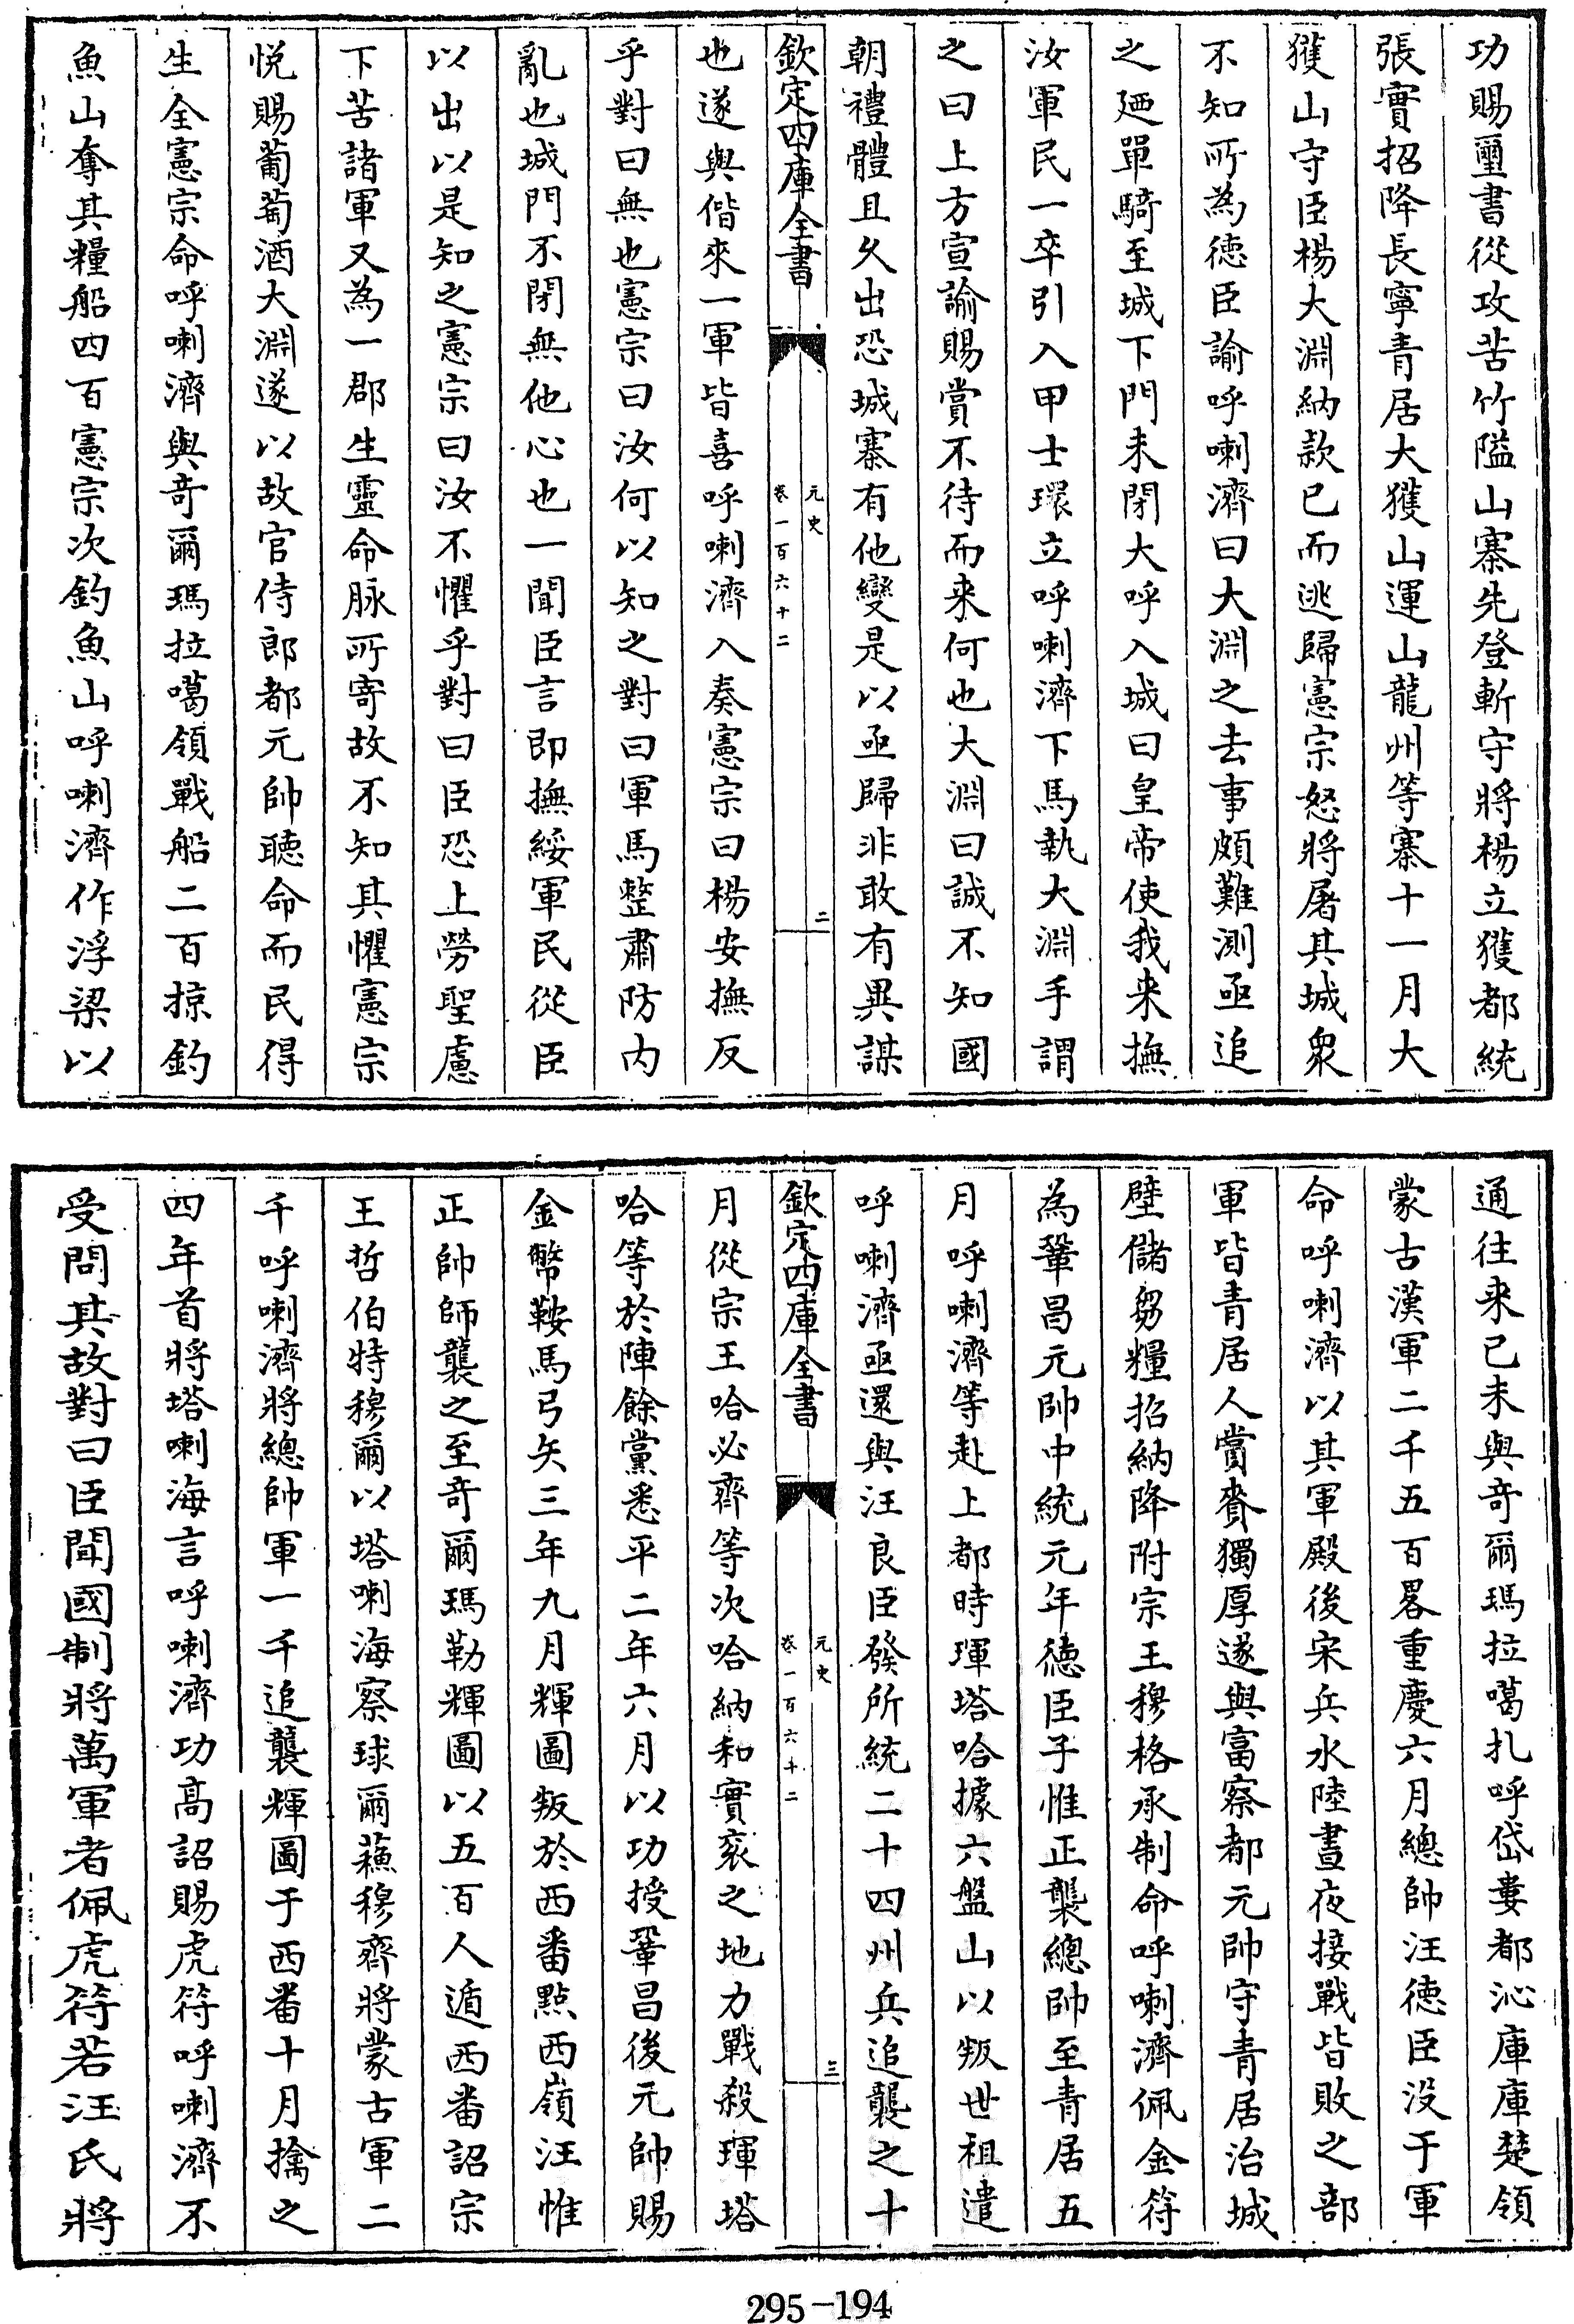 功賜璽書從攻苦竹隘山寨先登斬守將楊立獲都統
張實招降長寧青居大獲山運山龍州等寨十一月大
獲山守臣楊大淵納款已而逃歸憲宗怒將屠其城衆
不知所為徳臣諭呼喇濟曰大淵之去事頗難測亟追
之廼單騎至城下門未閉大呼入城曰皇帝使我来撫
汝軍民一卒引入甲士環立呼喇濟下馬執大淵手謂
之曰上方宣諭賜賞不待而来何也大淵曰誠不知國
朝禮體且乆出恐城寨有他變是以亟歸非敢有異謀
欽定四庫全書
元史
卷一百六十二
二
也遂與偕來一軍皆喜呼喇濟入奏憲宗曰楊安撫反
乎對曰無也憲宗曰汝何以知之對曰軍馬整肅防内
亂也城門不閉無他心也一聞臣言即撫綏軍民從臣
以出以是知之憲宗曰汝不懼乎對曰臣恐上勞聖慮
下苦諸軍又為一郡生靈命脉所寄故不知其懼憲宗
悦賜葡萄酒大淵遂以故官侍郎都元帥聽命而民得
生全憲宗命呼喇濟與奇爾瑪拉噶領戰船二百掠釣
魚山奪其糧船四百憲宗次釣魚山呼喇濟作浮梁以
通往来已未與奇爾瑪拉噶扎呼岱婁都沁庫庫楚領
蒙古漢軍二千五百畧重慶六月總帥汪徳臣没于軍
命呼喇濟以其軍殿後宋兵水陸晝夜接戰皆敗之部
軍皆青居人賞賚獨厚遂與富察都元帥守青居治城
壁儲芻糧招納降附宗王穆格承制命呼喇濟佩金符
為鞏昌元帥中統元年徳臣子惟正襲總帥至青居五
月呼喇濟等赴上都時琿塔哈據六盤山以叛世祖遣
呼喇濟亟還與汪良臣發所統二十四州兵追襲之十
欽定四庫全書
元史
卷一百六十二
三
月從宗王哈必齊等次哈納和實衮之地力戰殺琿塔
哈等於陣餘黨悉平二年六月以功授鞏昌後元帥賜
金幣鞍馬弓矢三年九月輝圖叛於西番點西嶺汪惟
正帥師襲之至奇爾瑪勒輝圖以五百人遁西番詔宗
王哲伯特穆爾以塔喇海察球爾蘓穆齊將蒙古軍二
千呼喇濟將總帥軍一千追襲輝圖于西番十月擒之
四年首將塔喇海言呼喇濟功高詔賜虎符呼喇濟不
受問其故對曰臣聞國制將萬軍者佩虎符若汪氏將
295-194